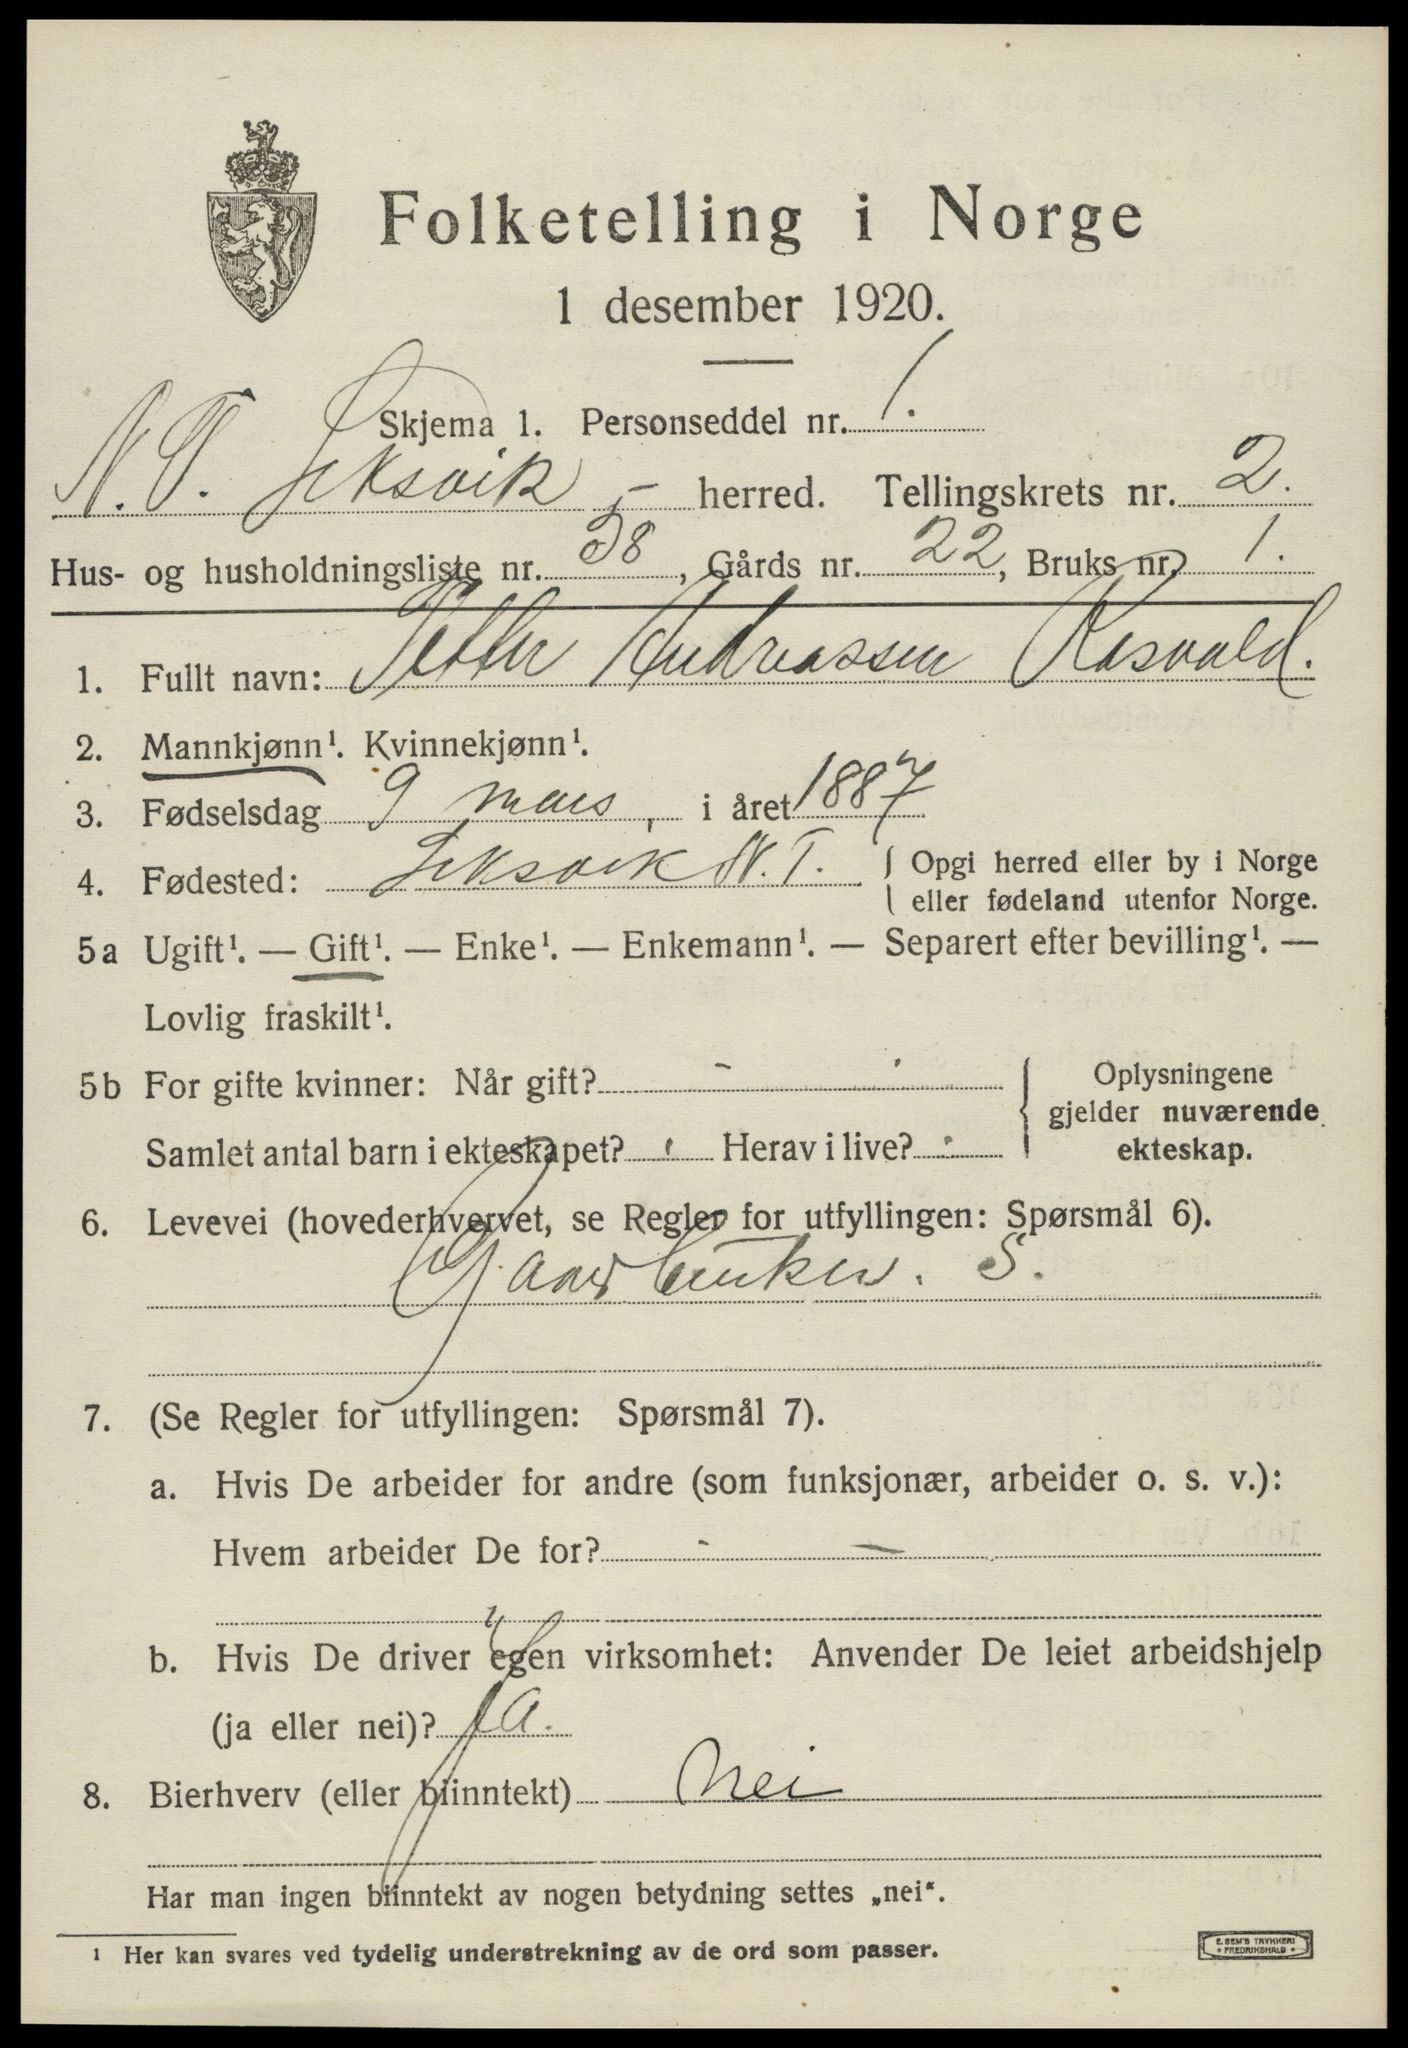 Folketelling i Norge
1 desember 1920.
Skjema 1. Personseddel nr. 1.
N.T. Leksvik - herred. Tellingskrets nr. 2.
Hus- og husholdningsliste nr. 38, Gårds nr. 22, Bruks nr. 1.
1. Fullt navn: Petter Andreassen Rosvold.
2. Mannkjønn¹. Kvinnekjønn¹.
3. Fødselsdag 9 mars, i året 1887
4. Fødested: Leksvik N.T. { Opgi herred eller by i Norge
eller fødeland utenfor Norge.
5a Ugift¹. — Gift¹. — Enke¹. — Enkemann¹. — Separert efter bevilling¹. —
Lovlig fraskilt¹.
5b For gifte kvinner: Når gift? - -
Samlet antal barn i ekteskapet? - Herav i live? -
Oplysningene
gjelder nuværende
ekteskap.
6. Levevei (hovederhvervet, se Regler for utfyllingen: Spørsmål 6).
Gaardbruker. S.
7. (Se Regler for utfyllingen: Spørsmål 7).
a. Hvis De arbeider for andre (som funksjonær, arbeider o. s. v.):
Hvem arbeider De for? - —
b. Hvis De driver egen virksomhet: Anvender De leiet arbeidshjelp
(ja eller nei)? Ja.
8. Bierhverv (eller biinntekt) Nei
Har man ingen biinntekt av nogen betydning settes „nei“.
¹ Her kan svares ved tydelig understrekning av de ord som passer.
E. SEM'S TRYKKERI
• FREDRIKSHALD •